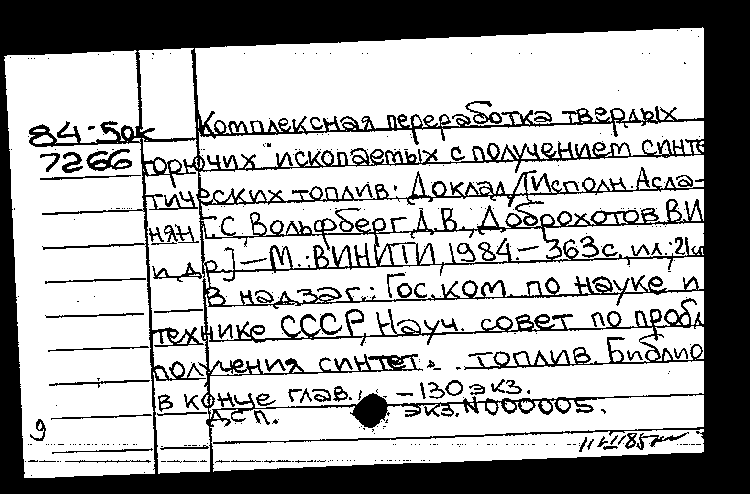 84-50к Комплексная переработка твердых
7266 горючих ископаемых с получением синте
тических топлив: Доклад/[Исполн. Асла-
нян Г.С., Вольфберг Д.В., Доброхотов В.И.
и др.] — М.: ВИНИТИ, 1984. — 363с., ил.; 21
В надзаг.: Гос. ком. по науке и
технике СССР, Науч. совет по пробл
получения синтет. топлив. Библио
в конце глав. — 130 экз.
ДСП. экз. N000005.
9